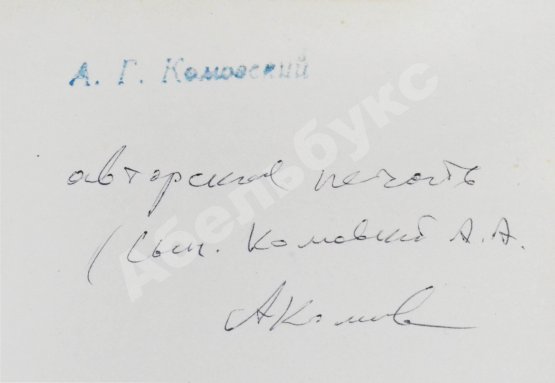 А. Г. Комовский
авторская печать
(сын. Комовский А. А.
АКомов
Абельбукс